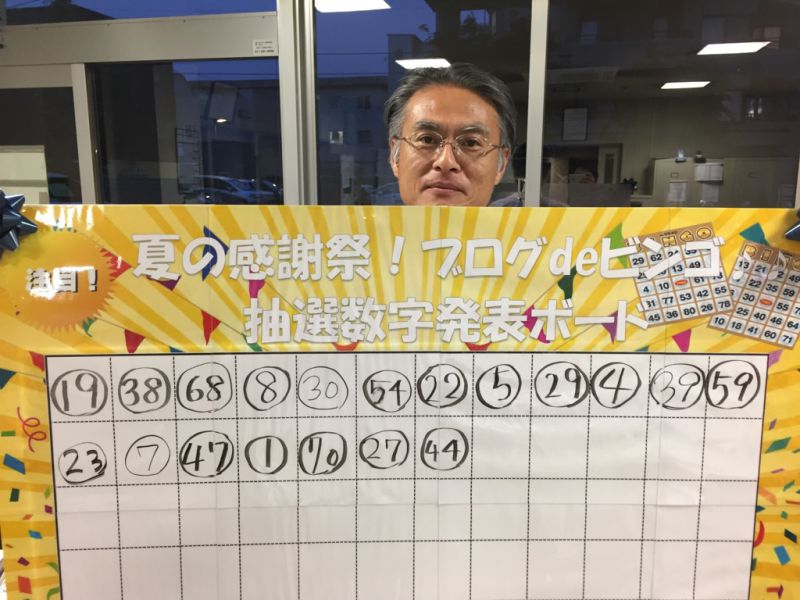 注目!
夏の感謝祭!ブログdeビンゴ
抽選数字発表ボード
19 38 68 8 30 54 22 5 29 4 39 59
23 7 47 1 70 27 44